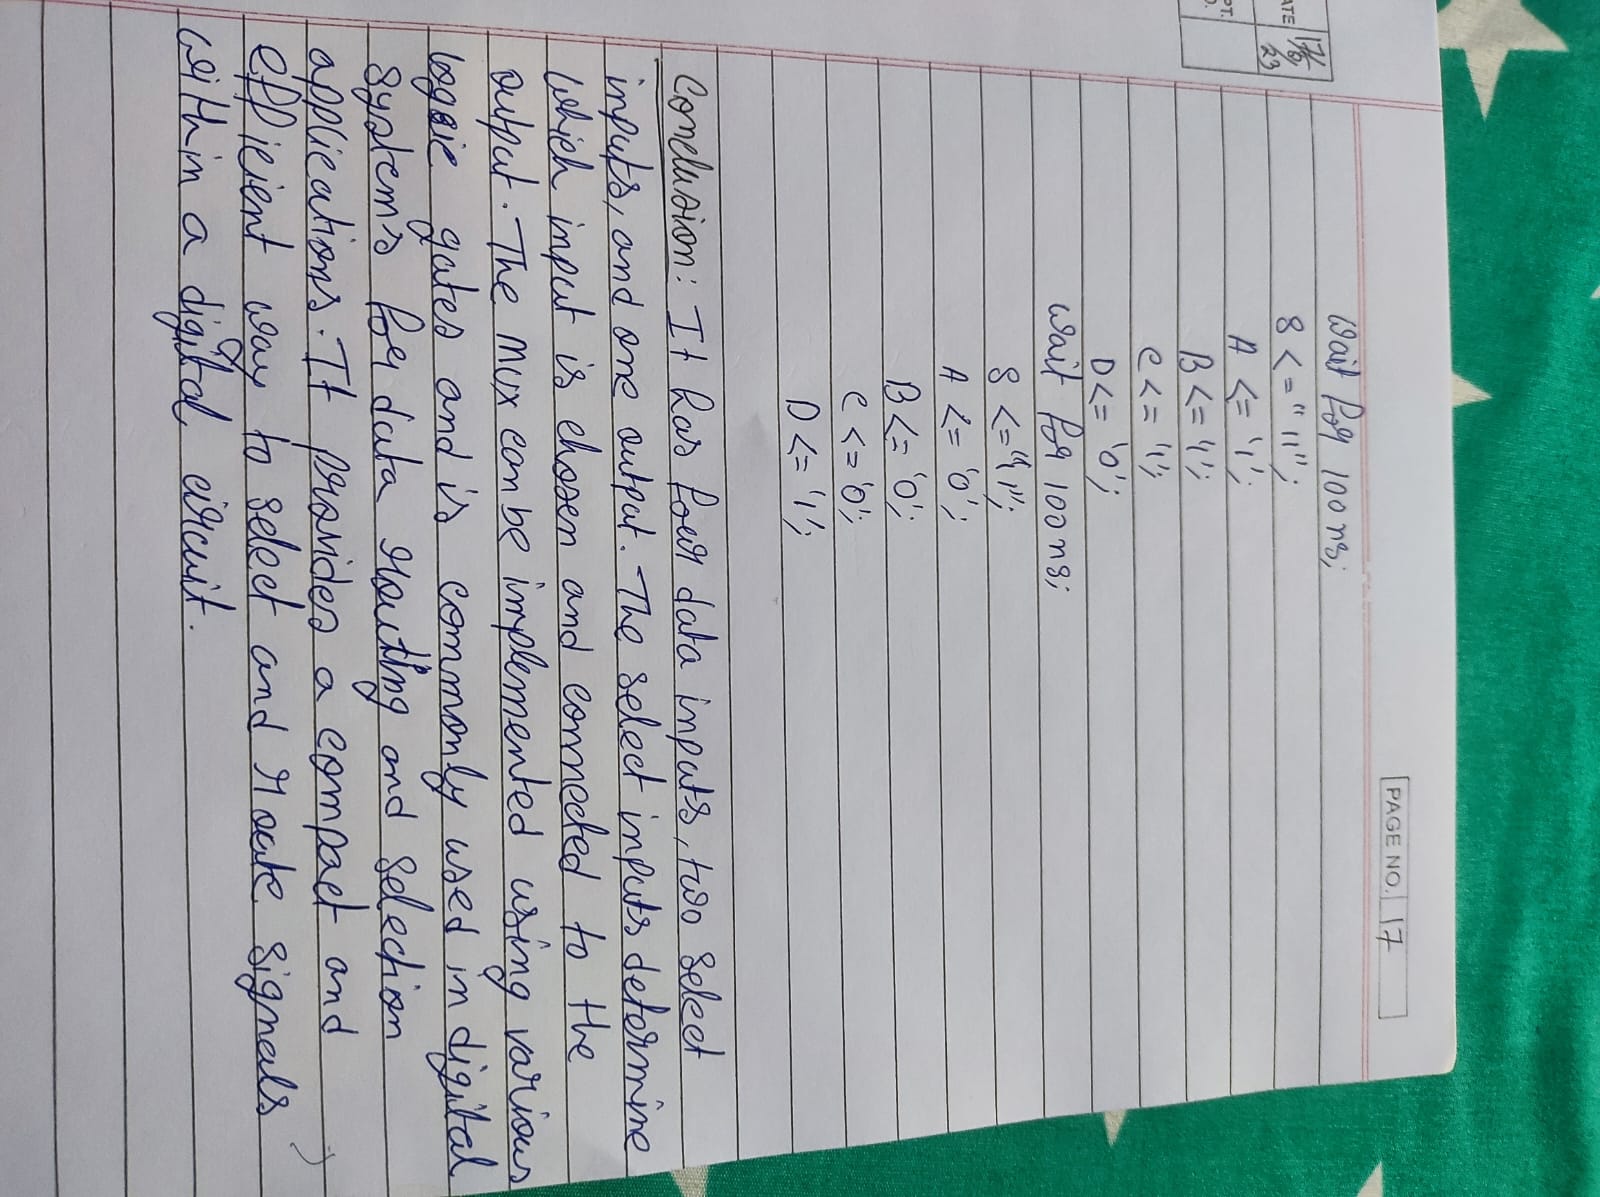 PAGE NO. 17
ATE 17/8/23
PT.
O.
Wait for 100 ns;
S <= "11";
A <= '1';
B <= '1';
C <= '1';
D <= '0';
Wait for 100 ns;
S <= "11";
A <= '0';
B <= '0';
C <= '0';
D <= '1';
Conclusion: It has four data inputs, two select
inputs, and one output. The select inputs determine
which input is chosen and connected to the
output. The mux can be implemented using various
logic gates and is commonly used in digital
systems for data routing and selection
applications. It provides a compact and
efficient way to select and route signals
within a digital circuit.